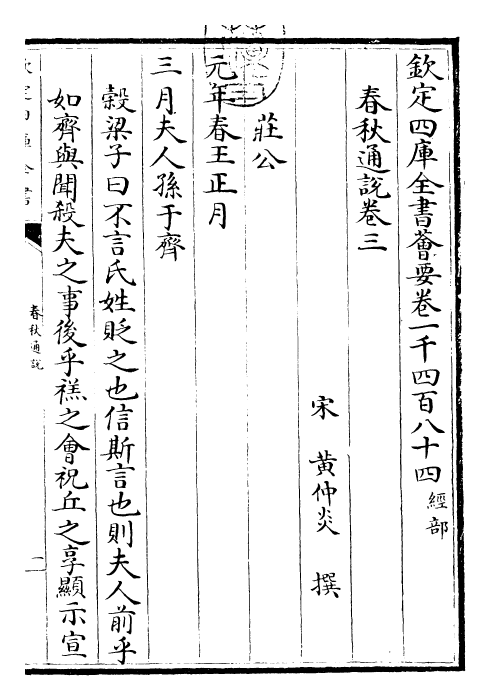 欽定四庫全書薈要卷一千四百八十四 經部
春秋通說卷三
宋 黃仲炎 撰
莊公
元年春王正月
三月夫人孫于齊
穀梁子曰不言氏姓貶之也信斯言也則夫人前乎
如齊與聞殺夫之事後乎禚之會祝丘之享顯示宣
春秋通說